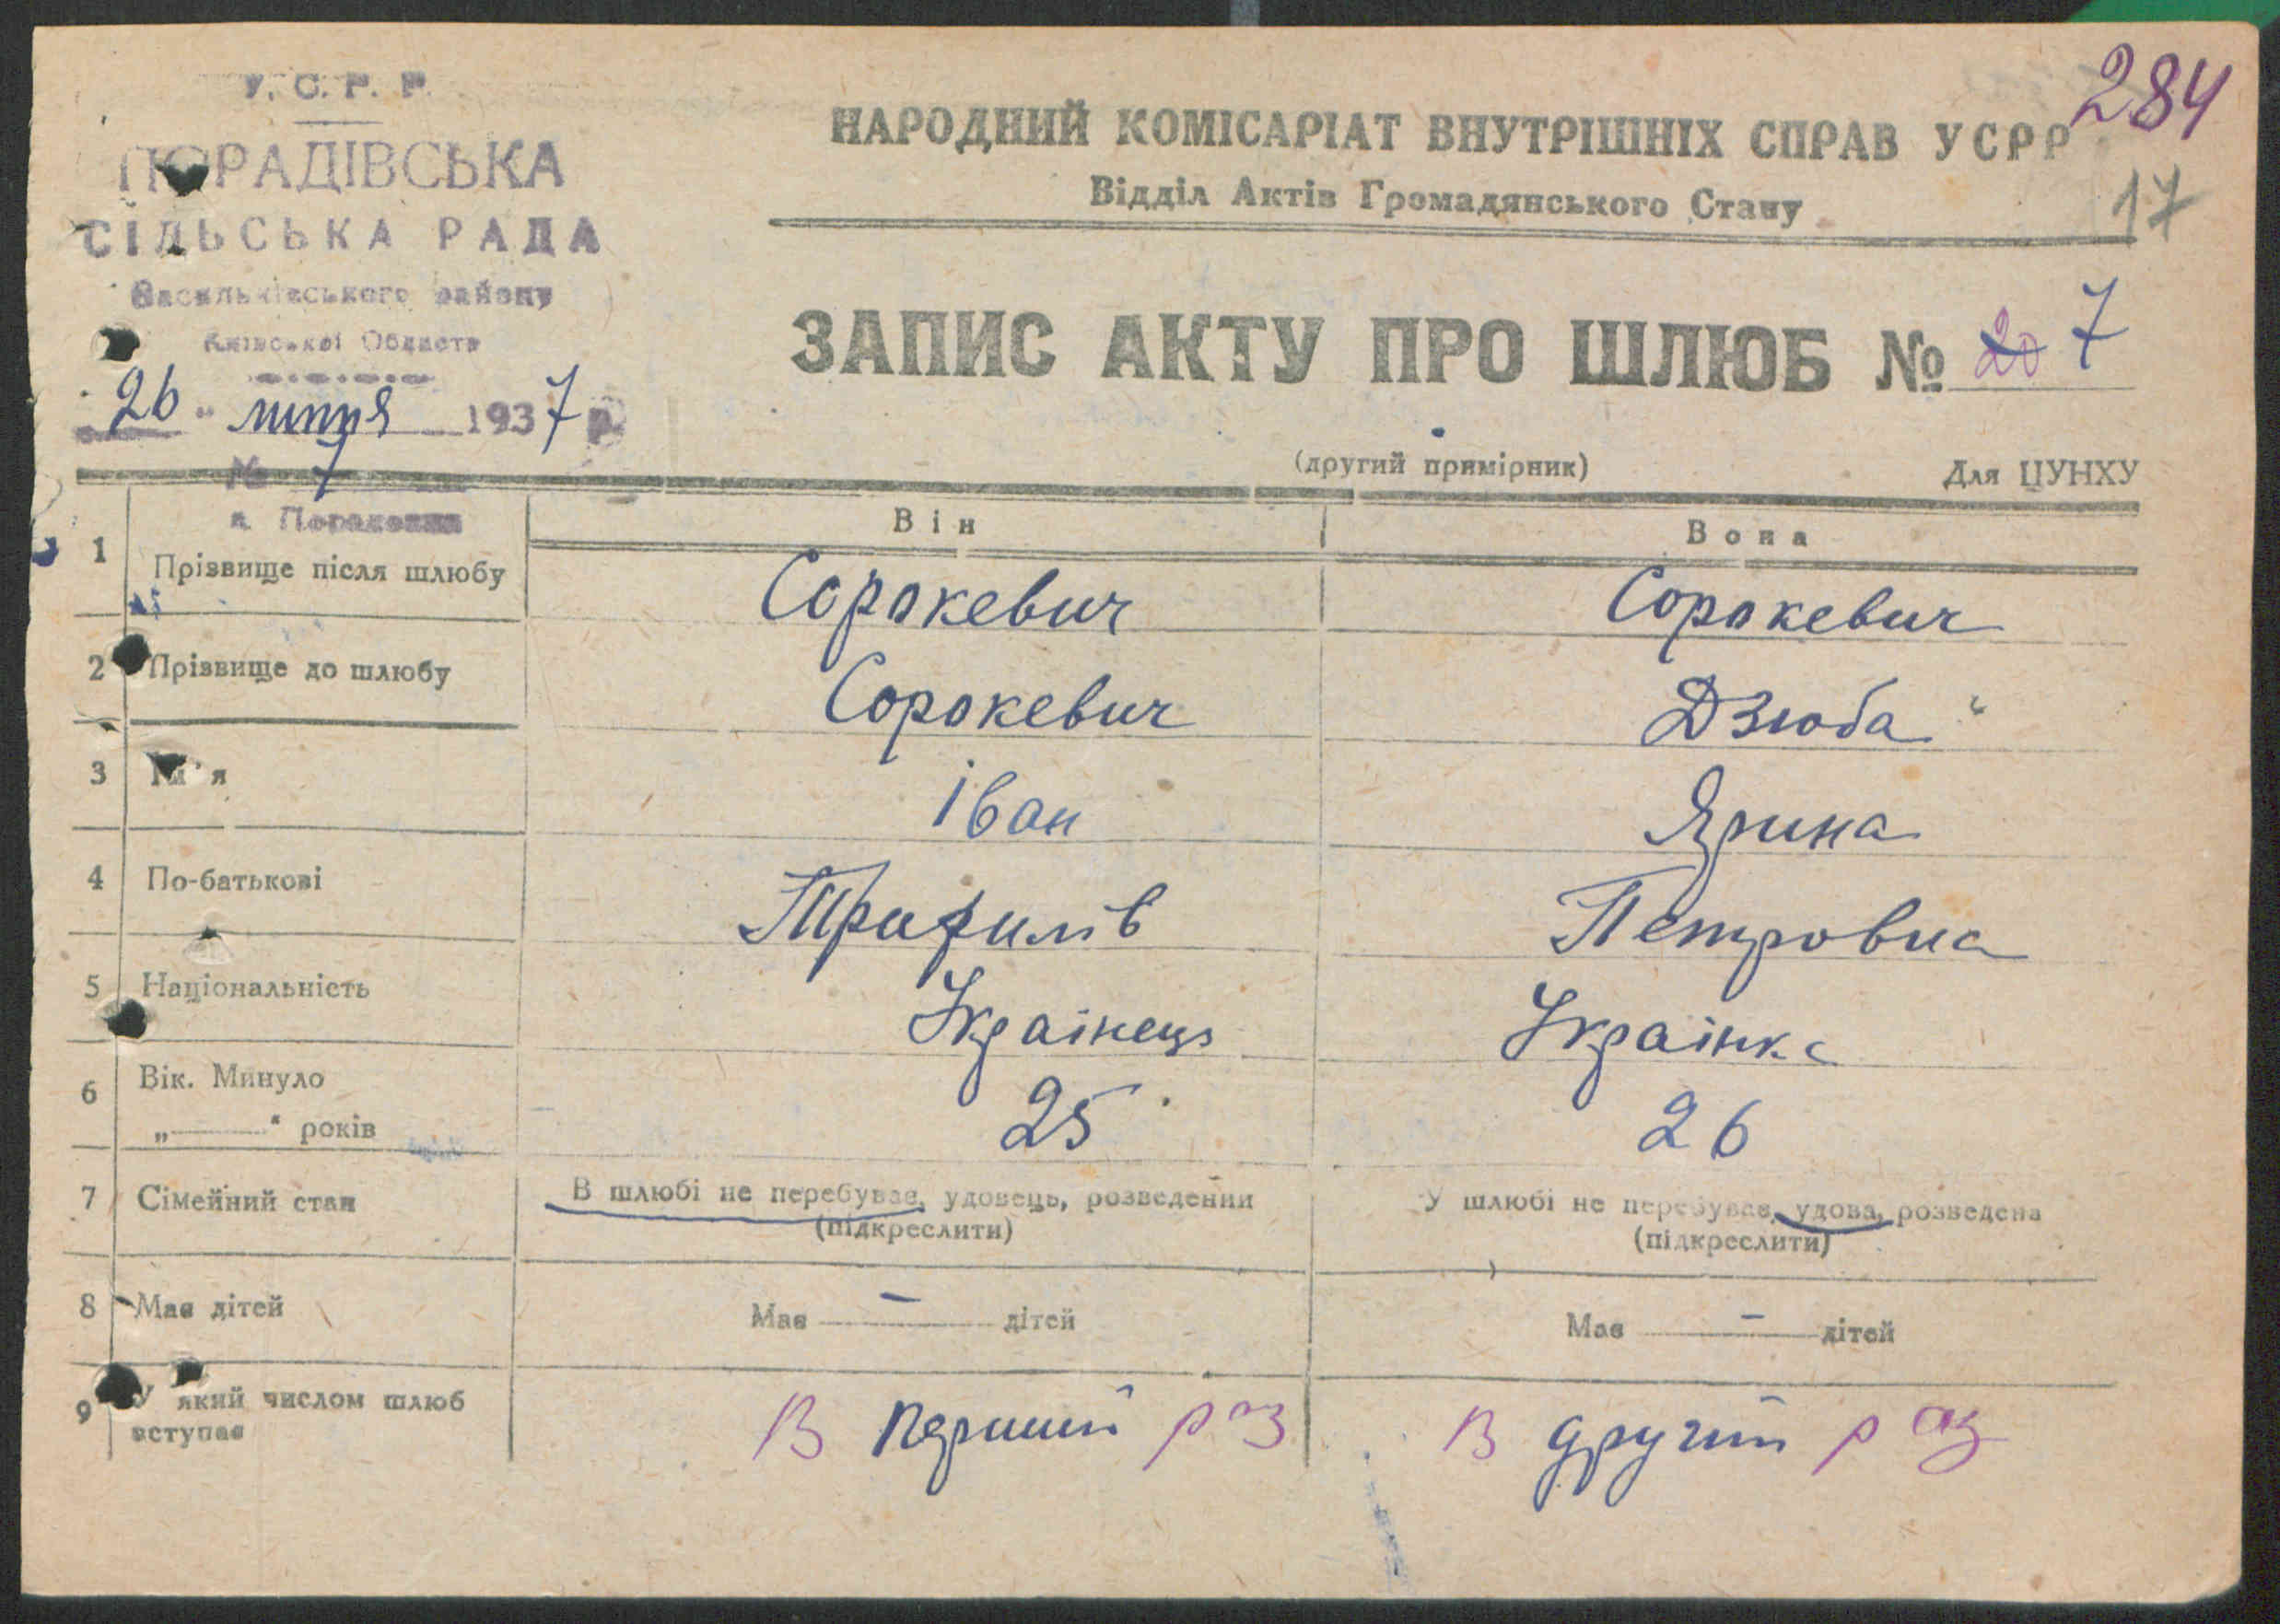 284
17
У. С. Р. Р.
ПОРАДІВСЬКА
СІЛЬСЬКА РАДА
Васильківського району
Київської Области
„26" липня 1937 р.
№ 7
с. Порадовка
НАРОДНИЙ КОМІСАРІАТ ВНУТРІШНІХ СПРАВ УСРР
Відділ Актів Громадянського Стану
ЗАПИС АКТУ ПРО ШЛЮБ № 20 7
(другий примірник) Для ЦУНХУ
Він Вона
1 Прізвище після шлюбу Сорокевич Сорокевич
2 Прізвище до шлюбу Сорокевич Дзюба
3 Ім'я Іван Ярина
4 По-батькові Трафилів Петровна
5 Національність Українець Українка
6 Вік. Минуло 25 26
„——" років
7 Сімейний стан В шлюбі не перебуває, удовець, розведений У шлюбі не перебуває, удова, розведена
(підкреслити) (підкреслити)
8 Має дітей Має — дітей Має — дітей
9 У який числом шлюб В перший раз В другий раз
вступає